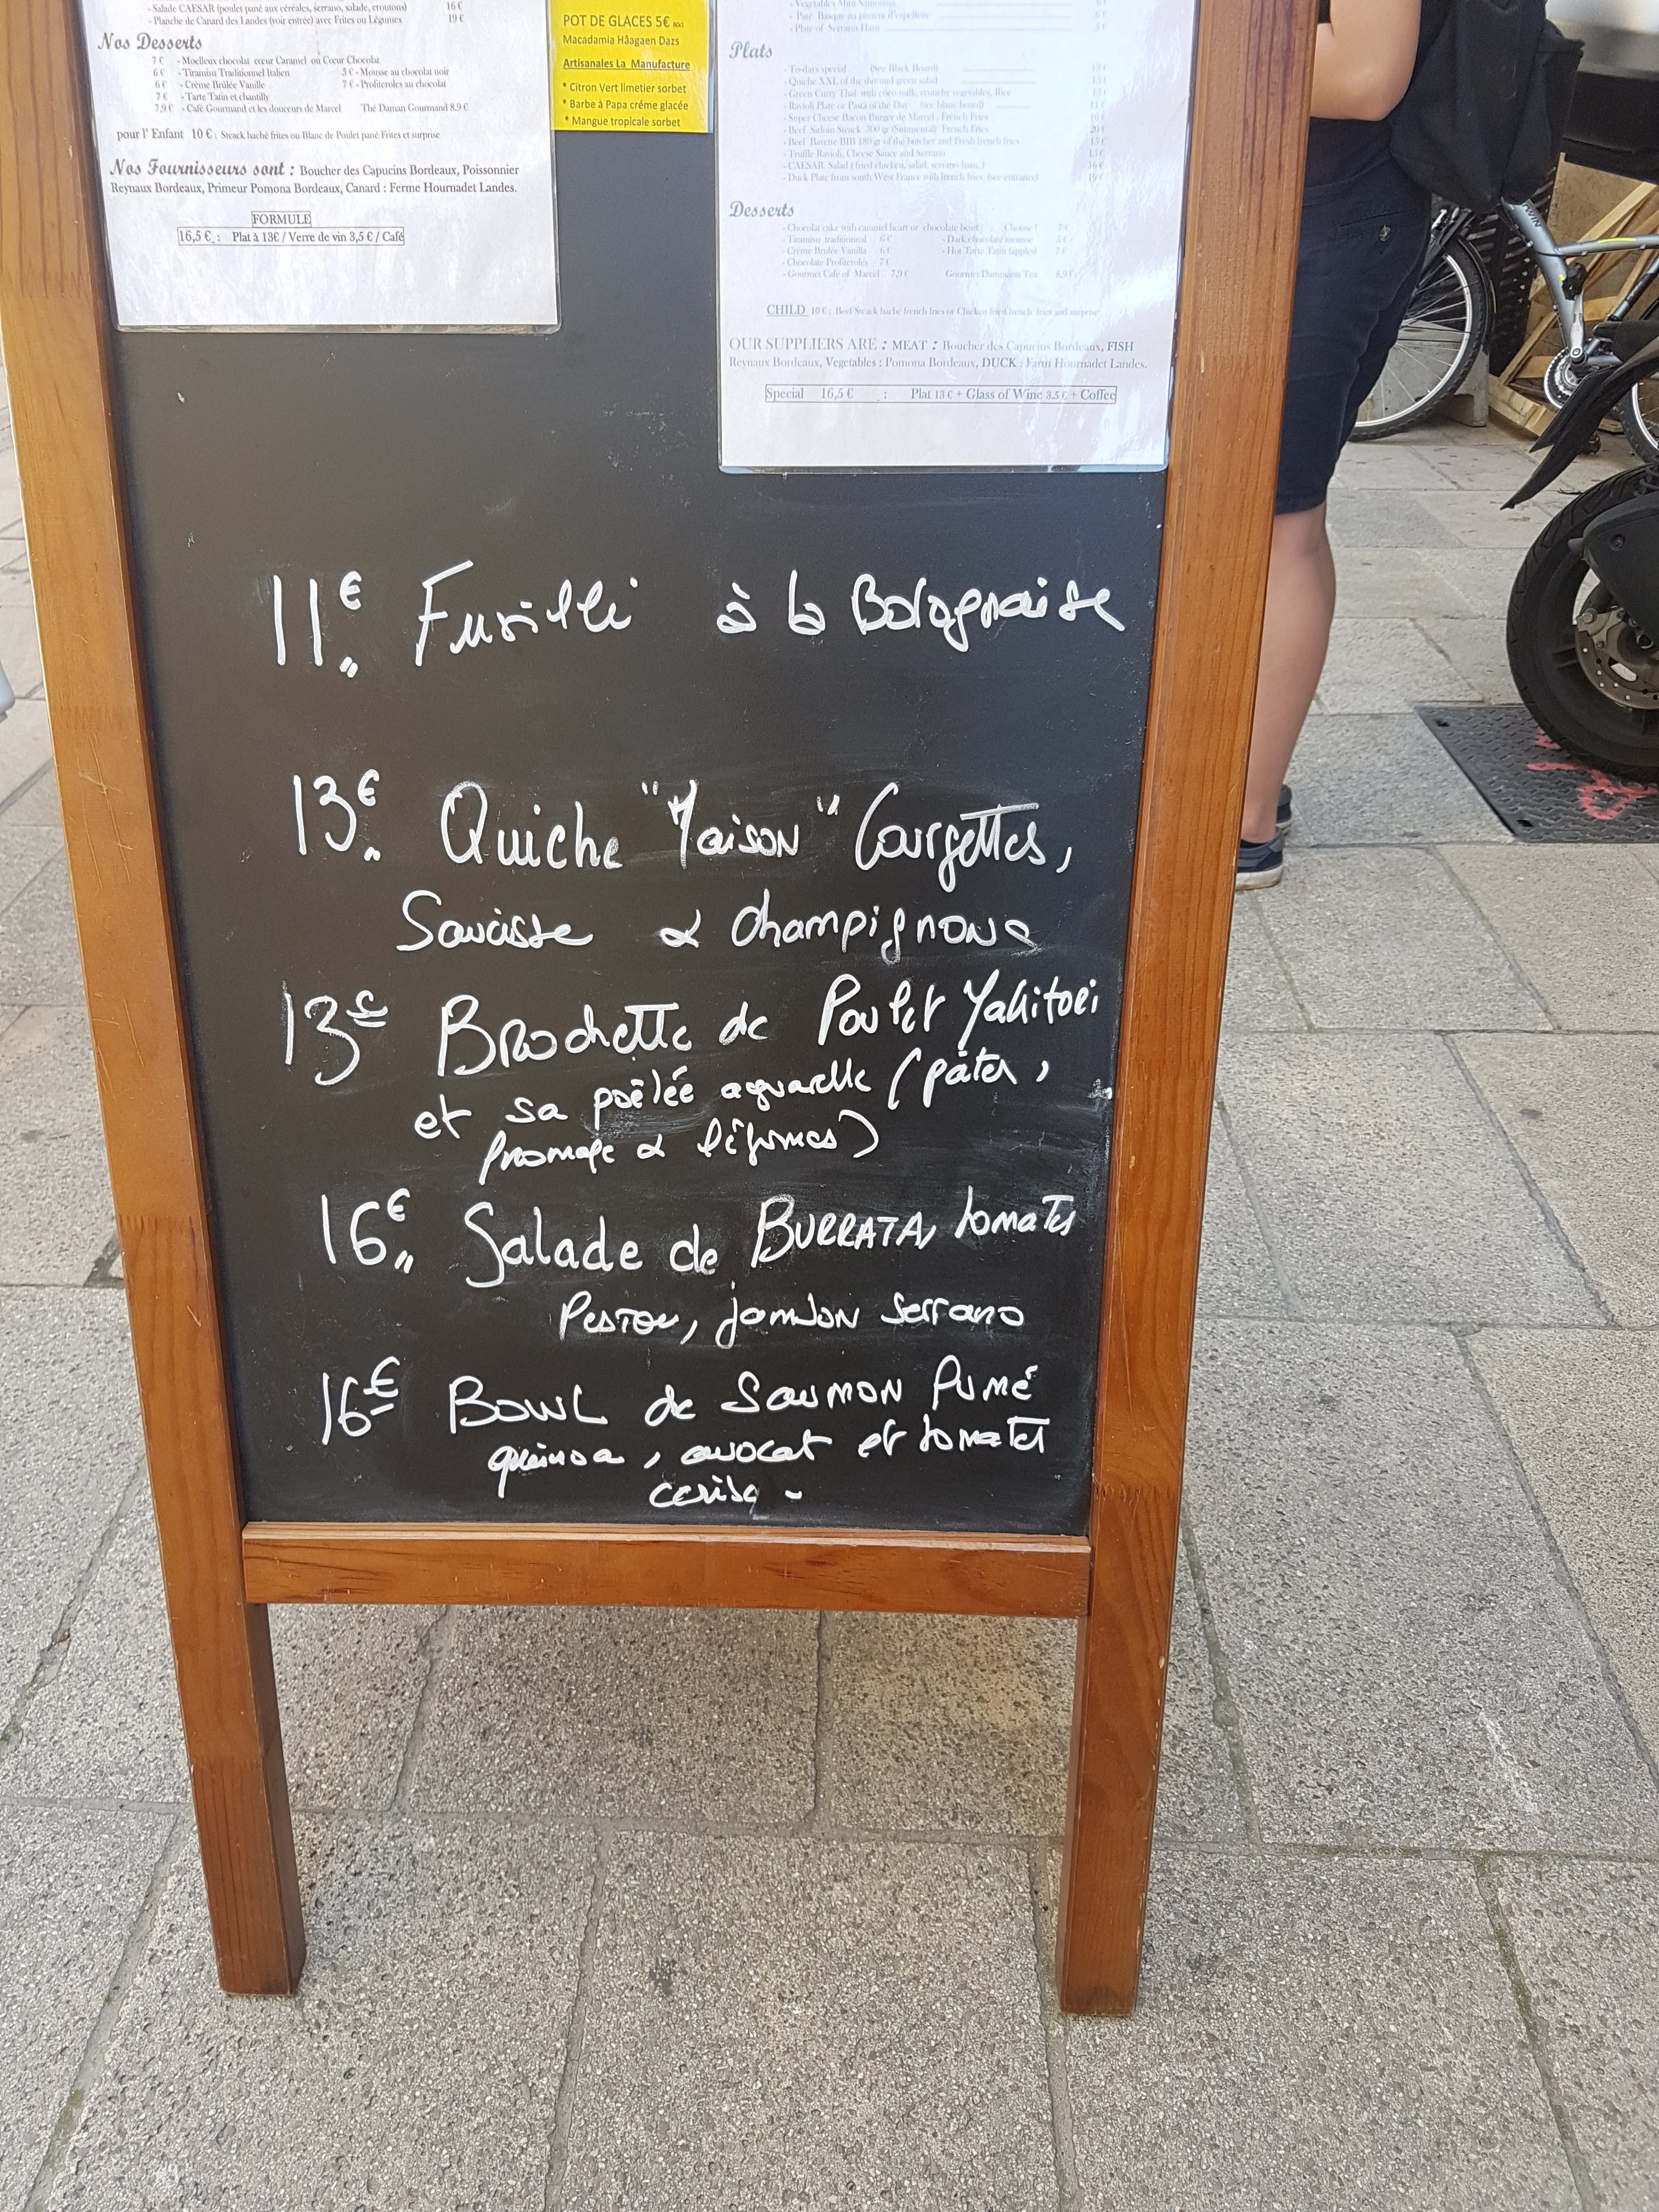 - Salade CAESAR (poulet pané aux céréales, serrano, salade, croutons) 16 €
- Planche de Canard des Landes (voir entrée) avec Frites ou Légumes 19 €
Nos Desserts
7 € - Moelleux chocolat cœur Caramel ou Cœur Chocolat
6 € - Tiramisu Traditionnel Italien 5 € - Mousse au chocolat noir
6 € - Crème Brûlée Vanille 7 € - Profiteroles au chocolat
7 € - Tarte Tatin et chantilly
7,9 € - Café Gourmand et les douceurs de Marcel Thé Daman Gourmand 8.9 €
pour l' Enfant 10 € : Steack haché frites ou Blanc de Poulet pané Frites et surprise
Nos Fournisseurs sont : Boucher des Capucins Bordeaux, Poissonnier
Reynaux Bordeaux, Primeur Pomona Bordeaux, Canard : Ferme Hournadet Landes.
FORMULE
16,5 € : Plat à 13€ / Verre de vin 3,5 € / Café
POT DE GLACES 5€
Macadamia Häagaen Dazs
Artisanales La Manufacture
* Citron Vert limetier sorbet
* Barbe à Papa créme glacée
* Mangue tropicale sorbet
- Vegetables Mini Samoussa
- Paté Basque au piment d'espelette
- Plate of Serrano Ham
Plats
- To-days special (See Black Board) 13 €
- Quiche XXL of the day and green salad 13 €
- Green Curry Thaï with coco milk, crunchy vegetables, Rice
- Ravioli Plate or Pasta of the Day (see blanc board) 11 €
- Super Cheese Bacon Burger de Marcel , French Fries
- Beef Sirloin Steack 300 gr (Simmental) French Fries
- Beef Bavette BIB 180 gr of the butcher and Fresh french fries
- Truffle Ravioli, Cheese Sauce and Serrano
- CAESAR Salad ( fried chicken, salad, serrano ham,) 16 €
- Duck Plate from south West France with french fries (see entrance) 19 €
Desserts
- Chocolat cake with caramel heart or chocolate heart - Choose ! 7 €
- Tiramisu traditionnal 6 € - Dark chocolate mousse 5 €
- Crème Brulée Vanilla 6 € - Hot Tarte Tatin (apples) 7 €
- Chocolate Profiteroles 7 €
- Gourmet Café of Marcel 7,9 € Gourmet Dammann Tea 8,9 €
CHILD 10 € : Beef Steack haché french fries or Chicken fried french fries and surprise
OUR SUPPLIERS ARE : MEAT : Boucher des Capucins Bordeaux, FISH
Reynaux Bordeaux, Vegetables : Pomona Bordeaux, DUCK : Farm Hournadet Landes.
Special 16,5 € : Plat 13 € + Glass of Wine 3.5 € + Coffee
11€ Fusilli à la Bolognaise
13€ Quiche "Maison" Courgettes,
Saucisse & Champignons
13€ Brochette de Poulet Yakitori
et sa poêlée aquarelle (pâtes,
fromage & légumes)
16€ Salade de BURRATA, tomates
Pestou, jambon Serrano
16€ BOWL de Saumon fumé
quinoa, avocat et tomates
cerise -